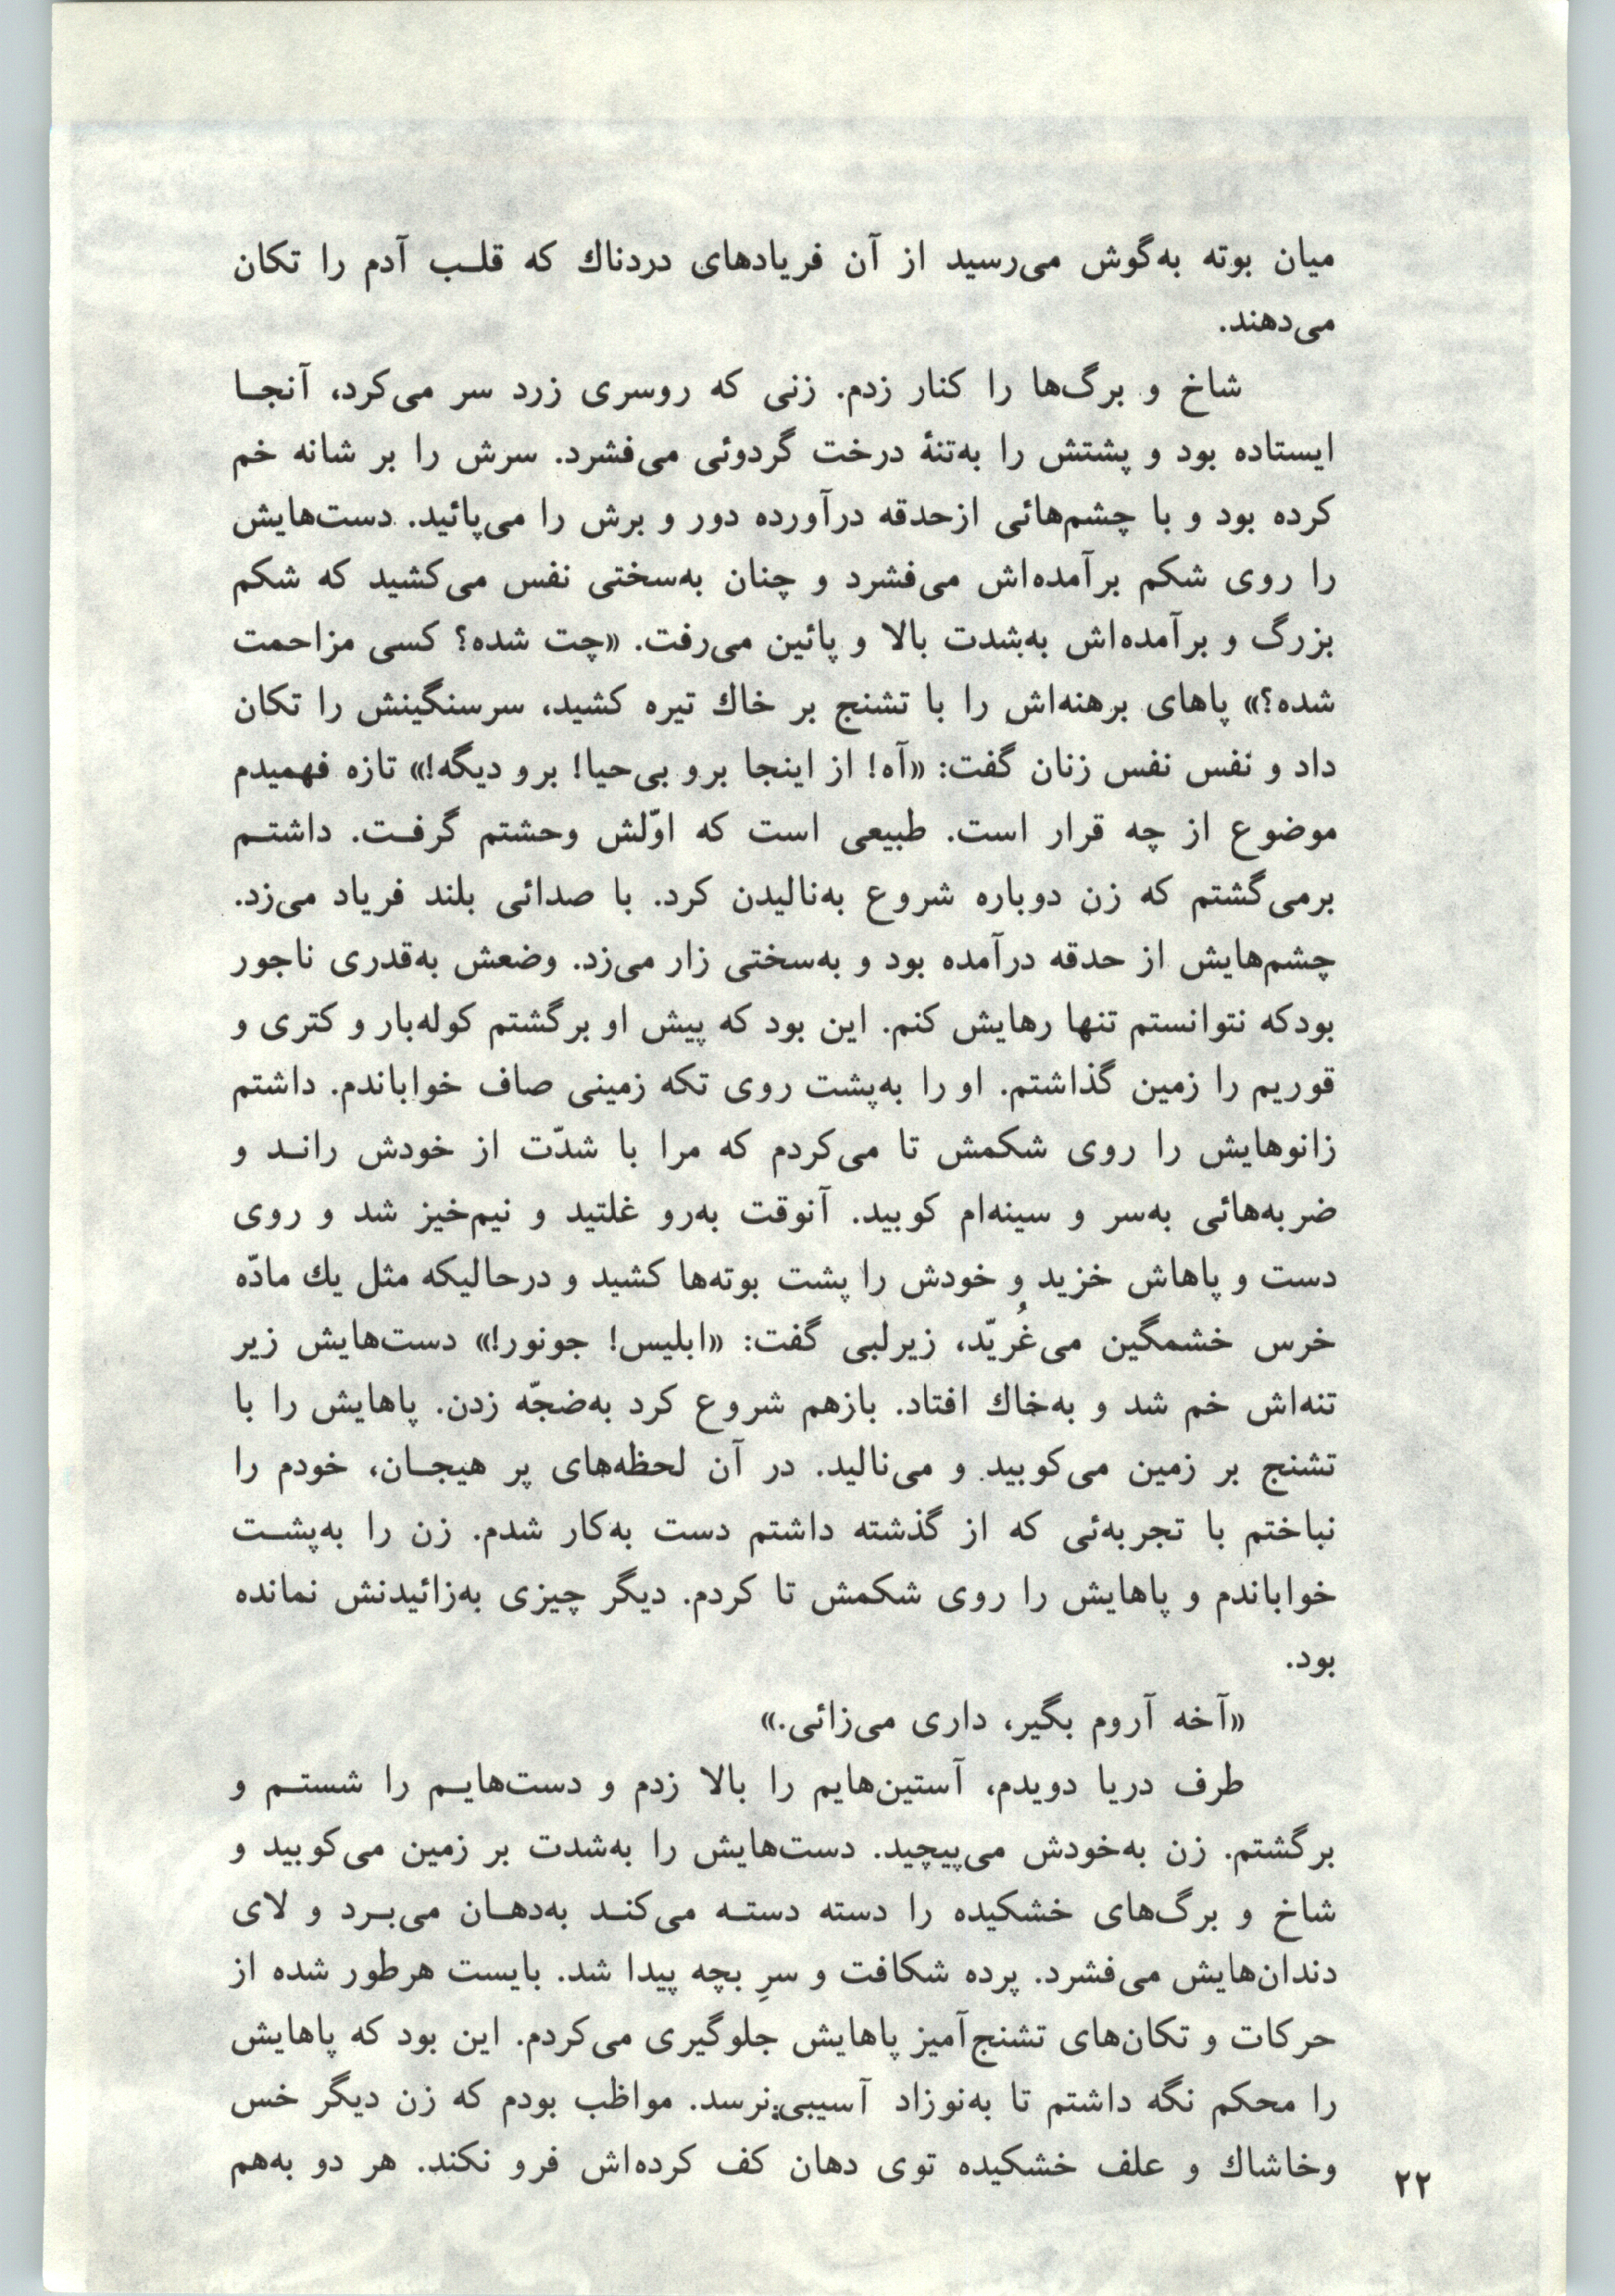 میان بوته به‌گوش می‌رسید از آن فریادهای دردناك که قلـب آدم را تکان
می‌دهند.
شاخ و برگ‌ها را کنار زدم. زنی که روسری زرد سر می‌کرد، آنجـا
ایستاده بود و پشتش را به‌تنهٔ درخت گردوئی می‌فشرد. سرش را بر شانه خم
کرده بود و با چشم‌هائی ازحدقه درآورده دور و برش را می‌پائید. دست‌هایش
را روی شکم برآمده‌اش می‌فشرد و چنان به‌سختی نفس می‌کشید که شکم
بزرگ و برآمده‌اش به‌شدت بالا و پائین می‌رفت. «چت شده؟ کسی مزاحمت
شده؟» پاهای برهنه‌اش را با تشنج بر خاك تیره کشید، سرسنگینش را تکان
داد و نفس نفس زنان گفت: «آه! از اینجا برو بی‌حیا! برو دیگه!» تازه فهمیدم
موضوع از چه قرار است. طبیعی است که اوّلش وحشتم گرفـت. داشتـم
برمی‌گشتم که زن دوباره شروع به‌نالیدن کرد. با صدائی بلند فریاد می‌زد.
چشم‌هایش از حدقه درآمده بود و به‌سختی زار می‌زد. وضعش به‌قدری ناجور
بودکه نتوانستم تنها رهایش کنم. این بود که پیش او برگشتم کوله‌بار و کتری و
قوریم را زمین گذاشتم. او را به‌پشت روی تکه زمینی صاف خواباندم. داشتم
زانوهایش را روی شکمش تا می‌کردم که مرا با شدّت از خودش رانـد و
ضربه‌هائی به‌سر و سینه‌ام کوبید. آنوقت به‌رو غلتید و نیم‌خیز شد و روی
دست و پاهاش خزید و خودش را پشت بوته‌ها کشید و درحالیکه مثل یك مادّه
خرس خشمگین می‌غُریّد، زیرلبی گفت: «ابلیس! جونور!» دست‌هایش زیر
تنه‌اش خم شد و به‌خاك افتاد. بازهم شروع کرد به‌ضجّه زدن. پاهایش را با
تشنج بر زمین می‌کوبید و می‌نالید. در آن لحظه‌های پر هیجـان، خودم را
نباختم با تجربه‌ئی که از گذشته داشتم دست به‌کار شدم. زن را به‌پشـت
خواباندم و پاهایش را روی شکمش تا کردم. دیگر چیزی به‌زائیدنش نمانده
بود.
«آخه آروم بگیر، داری می‌زائی.»
طرف دریا دویدم، آستین‌هایم را بالا زدم و دست‌هایـم را شستـم و
برگشتم. زن به‌خودش می‌پیچید. دست‌هایش را به‌شدت بر زمین می‌کوبید و
شاخ و برگ‌های خشکیده را دسته دستـه می‌کنـد به‌دهـان می‌بـرد و لای
دندان‌هایش می‌فشرد. پرده شکافت و سرِ بچه پیدا شد. بایست هرطور شده از
حرکات و تکان‌های تشنج‌آمیز پاهایش جلوگیری می‌کردم. این بود که پاهایش
را محکم نگه داشتم تا به‌نوزاد آسیبی نرسد. مواظب بودم که زن دیگر خس
وخاشاك و علف خشکیده توی دهان کف کرده‌اش فرو نکند. هر دو به‌هم
۲۲